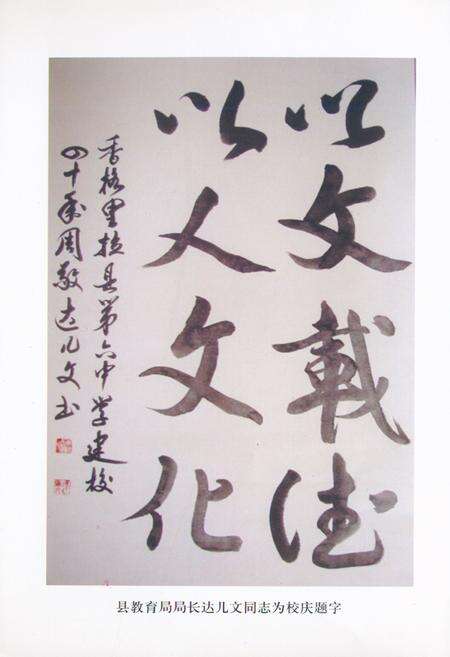 以文載德
以人文化
香格里拉县第六中学建校
四十年周敬达儿文书
县教育局局长达儿文同志为校庆题字